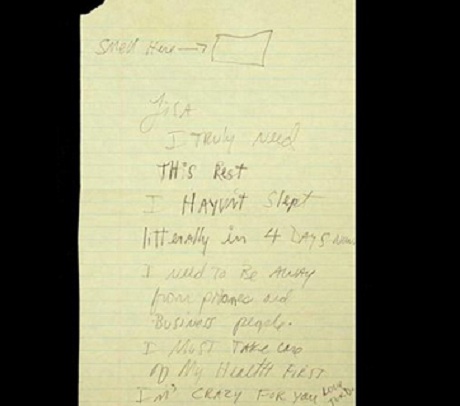 Smell Here →
Lisa
I TRuly Need
THis Rest
I HAVin't Slept
litterally in 4 DAYS now
I need To Be AWAy
from phones and
Business people.
I Must TAKe care
of My HeAlth FiRST
I'm CRAZY FoR You